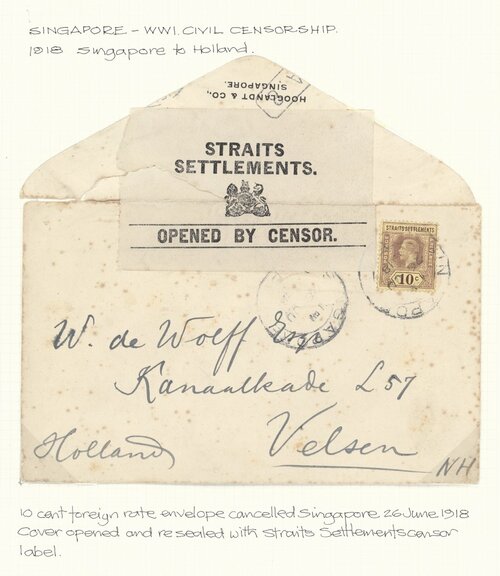 SINGAPORE - WWI. CIVIL CENSORSHIP.
1918 Singapore to Holland.
HOOGLANDT & CO.,
SINGAPORE.
STRAITS
SETTLEMENTS.
OPENED BY CENSOR.
STRAITS SETTLEMENTS
POSTAGE
10c
W. de Wolff
Kanaalkade L57
Velsen
Holland
NH
10 cent foreign rate envelope cancelled Singapore 26 June 1918
Cover opened and resealed with Straits Settlements censor
label.